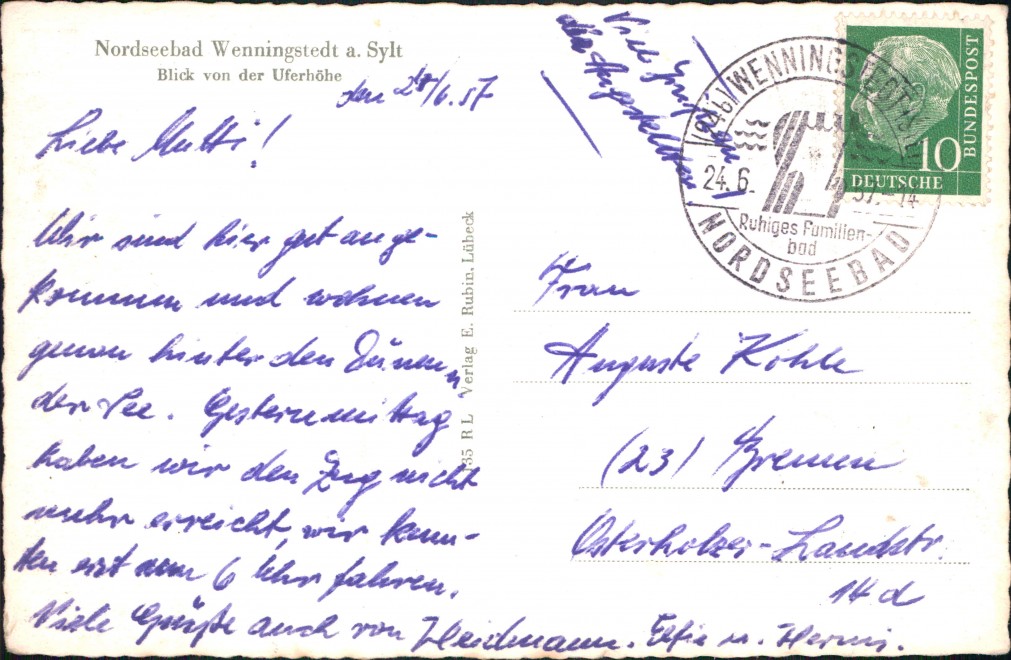 Nordseebad Wenningstedt a. Sylt
Blick von der Uferhöhe
den 24/6.57
Liebe Mutti!
Wir sind hier gut ange-
kommen und wohnen
genau hinter den Dünen
der See. Gestern mittag
haben wir den Zug nicht
mehr erreicht, wir konn-
ten erst um 6 Uhr fahren.
Viele Grüße auch von Heidmann. Elfie u.
135 R L Verlag E. Rubin, Lübeck
Viele
(24b) WENNINGSTEDT/SYLT
24.6. 57.-14
Ruhiges Familien-
bad
NORDSEEBAD
10
DEUTSCHE
BUNDESPOST
Frau
Auguste Kohle
(23) Bremen
Osterholzer-Landstr.
14 d